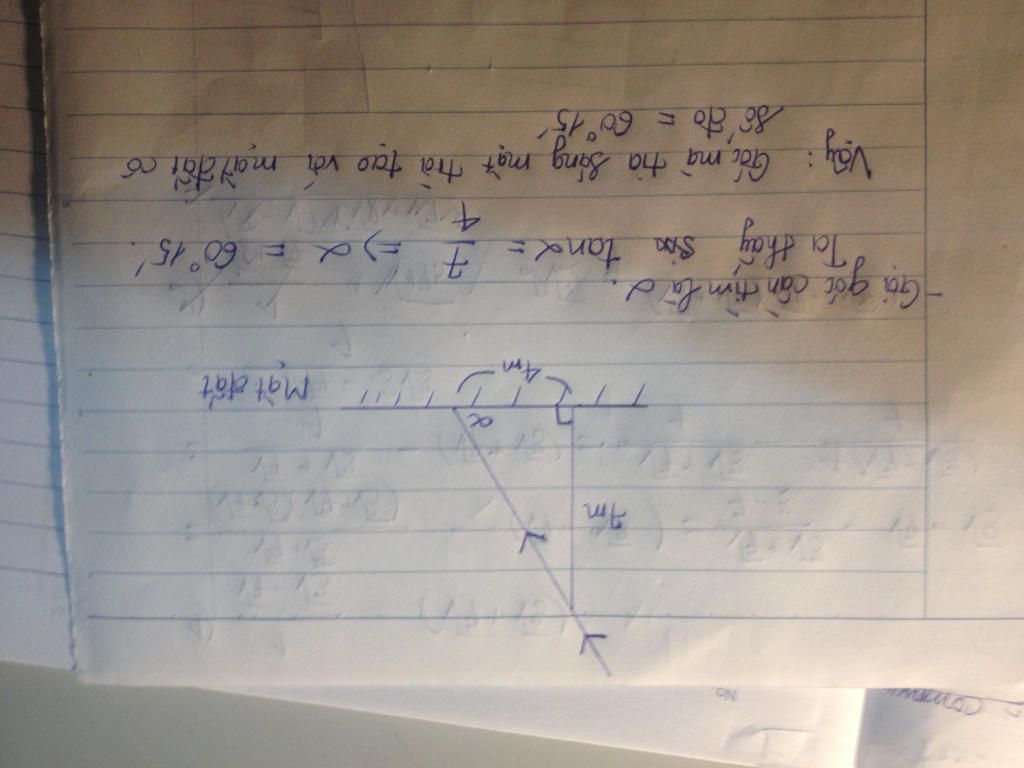 7m
α
4m
Mặt đất
- Gọi góc cần tìm là α.
Ta thấy tanα = 7/4 => α = 60°15'.
Vậy: Góc mà tia sáng mặt trời tạo với mặt đất có
số đo = 60°15'
No